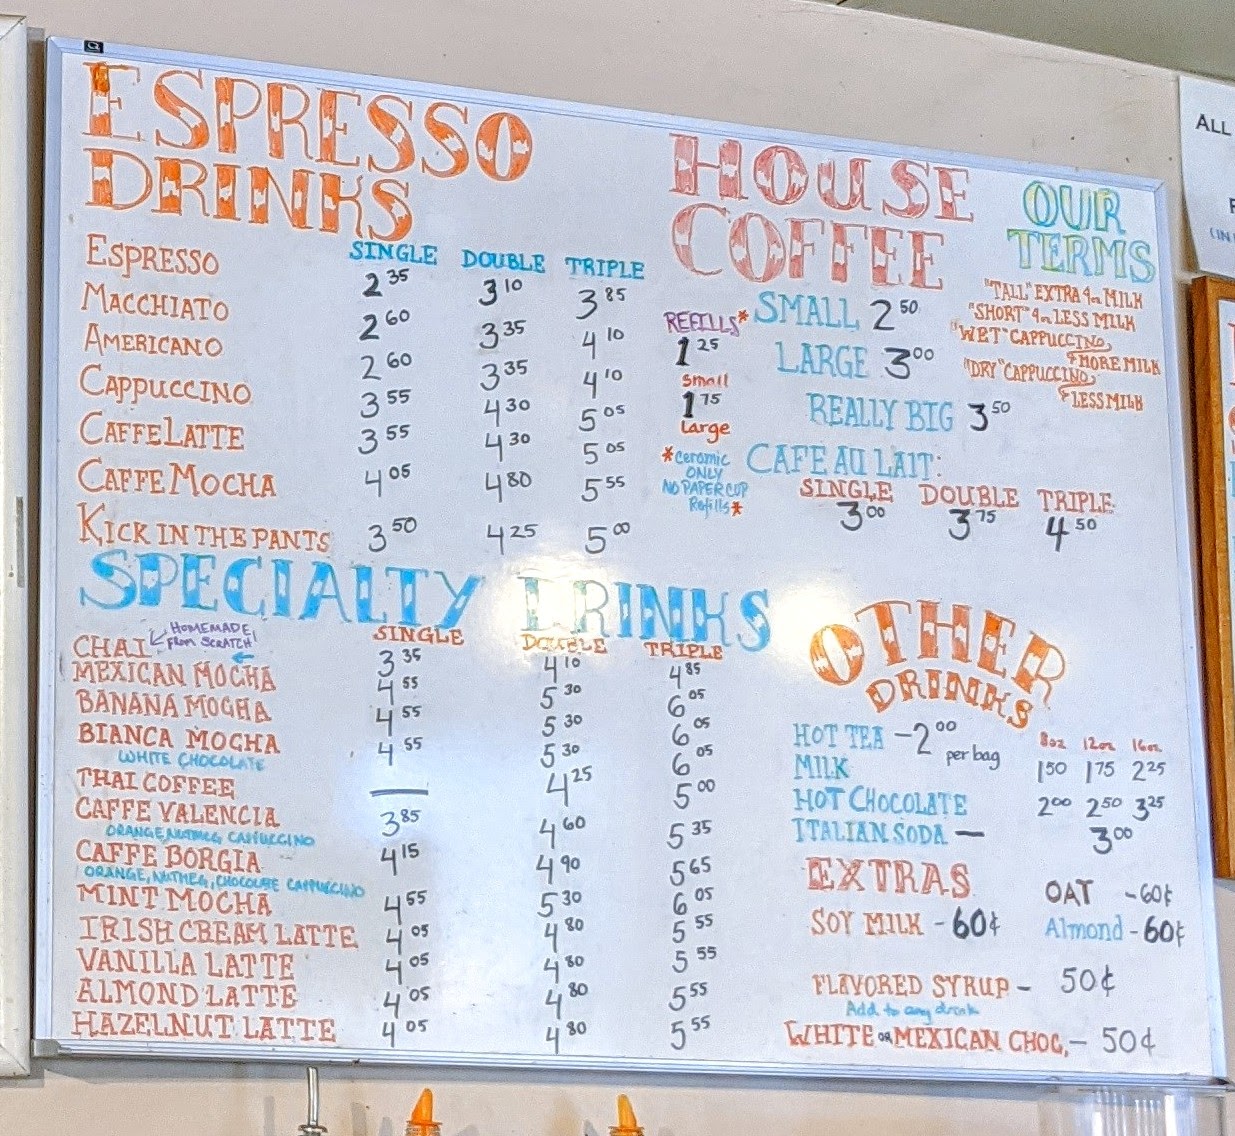 ESPRESSO
DRINKS
SINGLE DOUBLE TRIPLE
ESPRESSO 2 35 3 10 3 85
MACCHIATO 2 60 3 35 4 10
AMERICANO 2 60 3 35 4 10
CAPPUCCINO 3 55 4 30 5 05
CAFFE LATTE 3 55 4 30 5 05
CAFFE MOCHA 4 05 4 80 5 55
KICK IN THE PANTS 3 50 4 25 5 00
HOUSE
COFFEE
SMALL 2 50
LARGE 3 00
REALLY BIG 3 50
REFILLS*
1 25
small
1 75
large
*ceramic
ONLY
NO PAPER CUP
Refills*
CAFE AU LAIT:
SINGLE DOUBLE TRIPLE
3 00 3 75 4 50
OUR
TERMS
"TALL" EXTRA MILK
"SHORT" LESS MILK
"WET" CAPPUCCINO
MORE MILK
"DRY" CAPPUCCINO
LESS MILK
SPECIALTY DRINKS
SINGLE DOUBLE TRIPLE
CHAI HOMEMADE 3 35 4 10 4 85
FROM SCRATCH!
MEXICAN MOCHA 4 55 5 30 6 05
BANANA MOCHA 4 55 5 30 6 05
BIANCA MOCHA 4 55 5 30 6 05
WHITE CHOCOLATE
THAI COFFEE — 4 25 5 00
CAFFE VALENCIA 3 85 4 60 5 35
ORANGE, NUTMEG, CAPPUCCINO
CAFFE BORGIA 4 15 4 90 5 65
ORANGE, NUTMEG, CHOCOLATE CAPPUCCINO
MINT MOCHA 4 55 5 30 6 05
IRISH CREAM LATTE 4 05 4 80 5 55
VANILLA LATTE 4 05 4 80 5 55
ALMOND LATTE 4 05 4 80 5 55
HAZELNUT LATTE 4 05 4 80 5 55
OTHER
DRINKS
HOT TEA - 2 00 per bag
8oz 12oz 16oz
MILK 1 50 1 75 2 25
HOT CHOCOLATE 2 00 2 50 3 25
ITALIAN SODA — 3 00
EXTRAS
OAT - 60¢
SOY MILK - 60¢ Almond - 60¢
FLAVORED SYRUP - 50¢
Add to any drink
WHITE OR MEXICAN CHOC, - 50¢
ALL
(IN